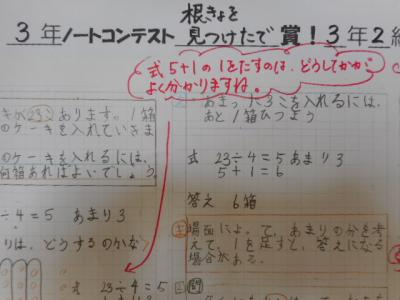 根きょを
3年ノートコンテスト 見つけたで賞！3年2組
式5+1の1をたすのは、どうしてかが
よく分かりますね。
キが23こあります。1箱
のケーキを入れていきま
のケーキを入れるには、
何箱あればよいでしょう
÷4=5 あまり3
りは、どうするのかな
あまった3こを入れるには、
あと1箱ひつよう
式 23÷4=5あまり3
5+1=6
答え 6箱
場面によって、あまりの分を考
えて、1を足すと、答えになる
場合がある。
式 23÷4=5